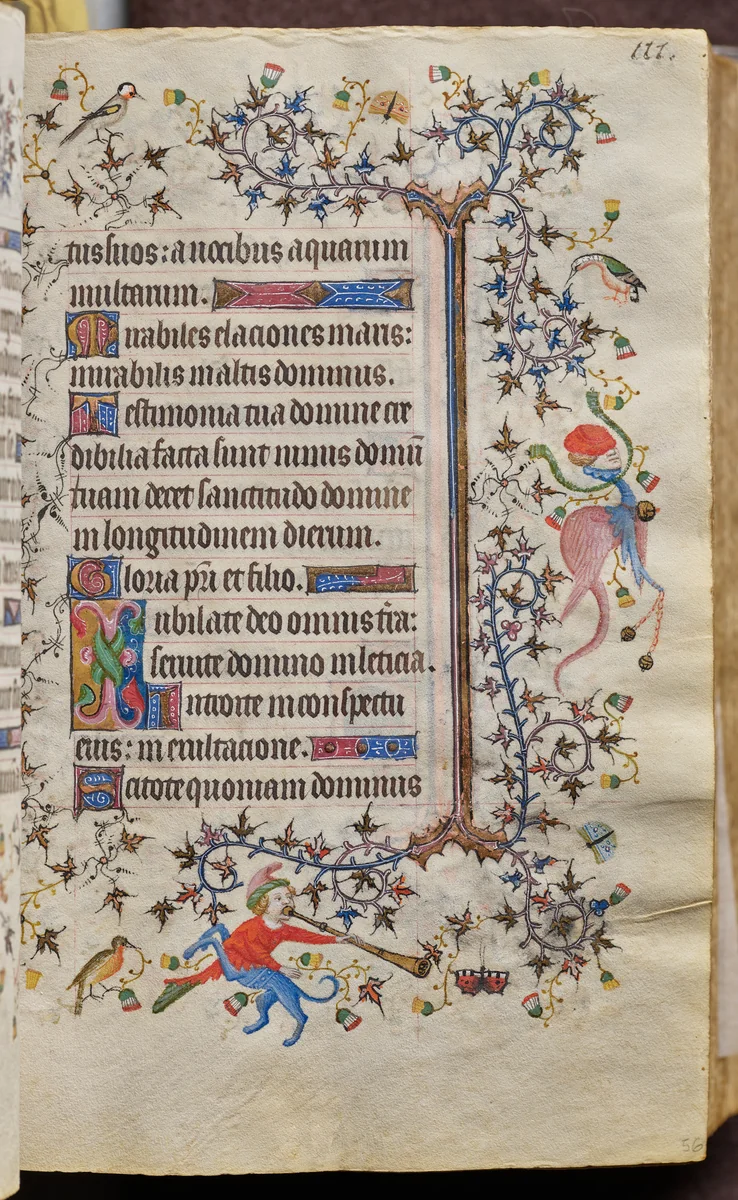 111.
tus suos: a vocibus aquarum
multarum.
Mirabiles elaciones maris:
mirabilis in altis dominus.
Testimonia tua domine cre
dibilia facta sunt nimis domū
tuam decet sanctitudo domine
in longitudinem dierum.
Gloria pr̄i et filio.
Iubilate deo omnis t̄ra:
servite domino in leticia.
Introite in conspectu
eius: in exultacione.
Scitote quoniam dominus
56